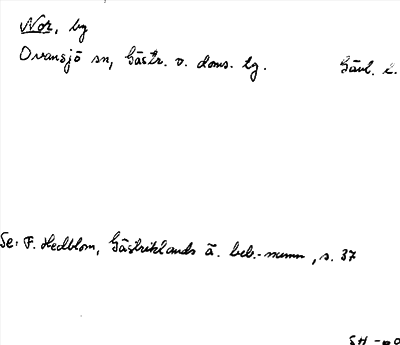 Nor, by
Ovansjö sn, Gästr. v. doms. tg.
Gävl. l.
Se: F. Hedblom, Gästriklands ä. beb.-namn, s. 37